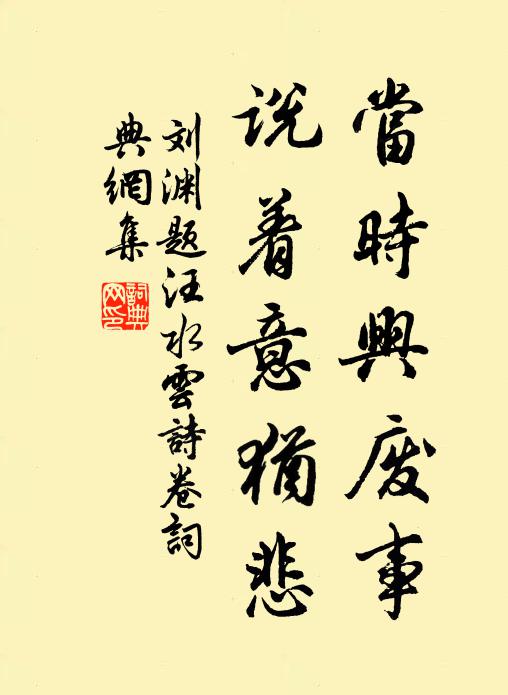 當時興廢事
説着意猶悲
刘渊题汪水雲詩卷詞
典網集
詞典
网印